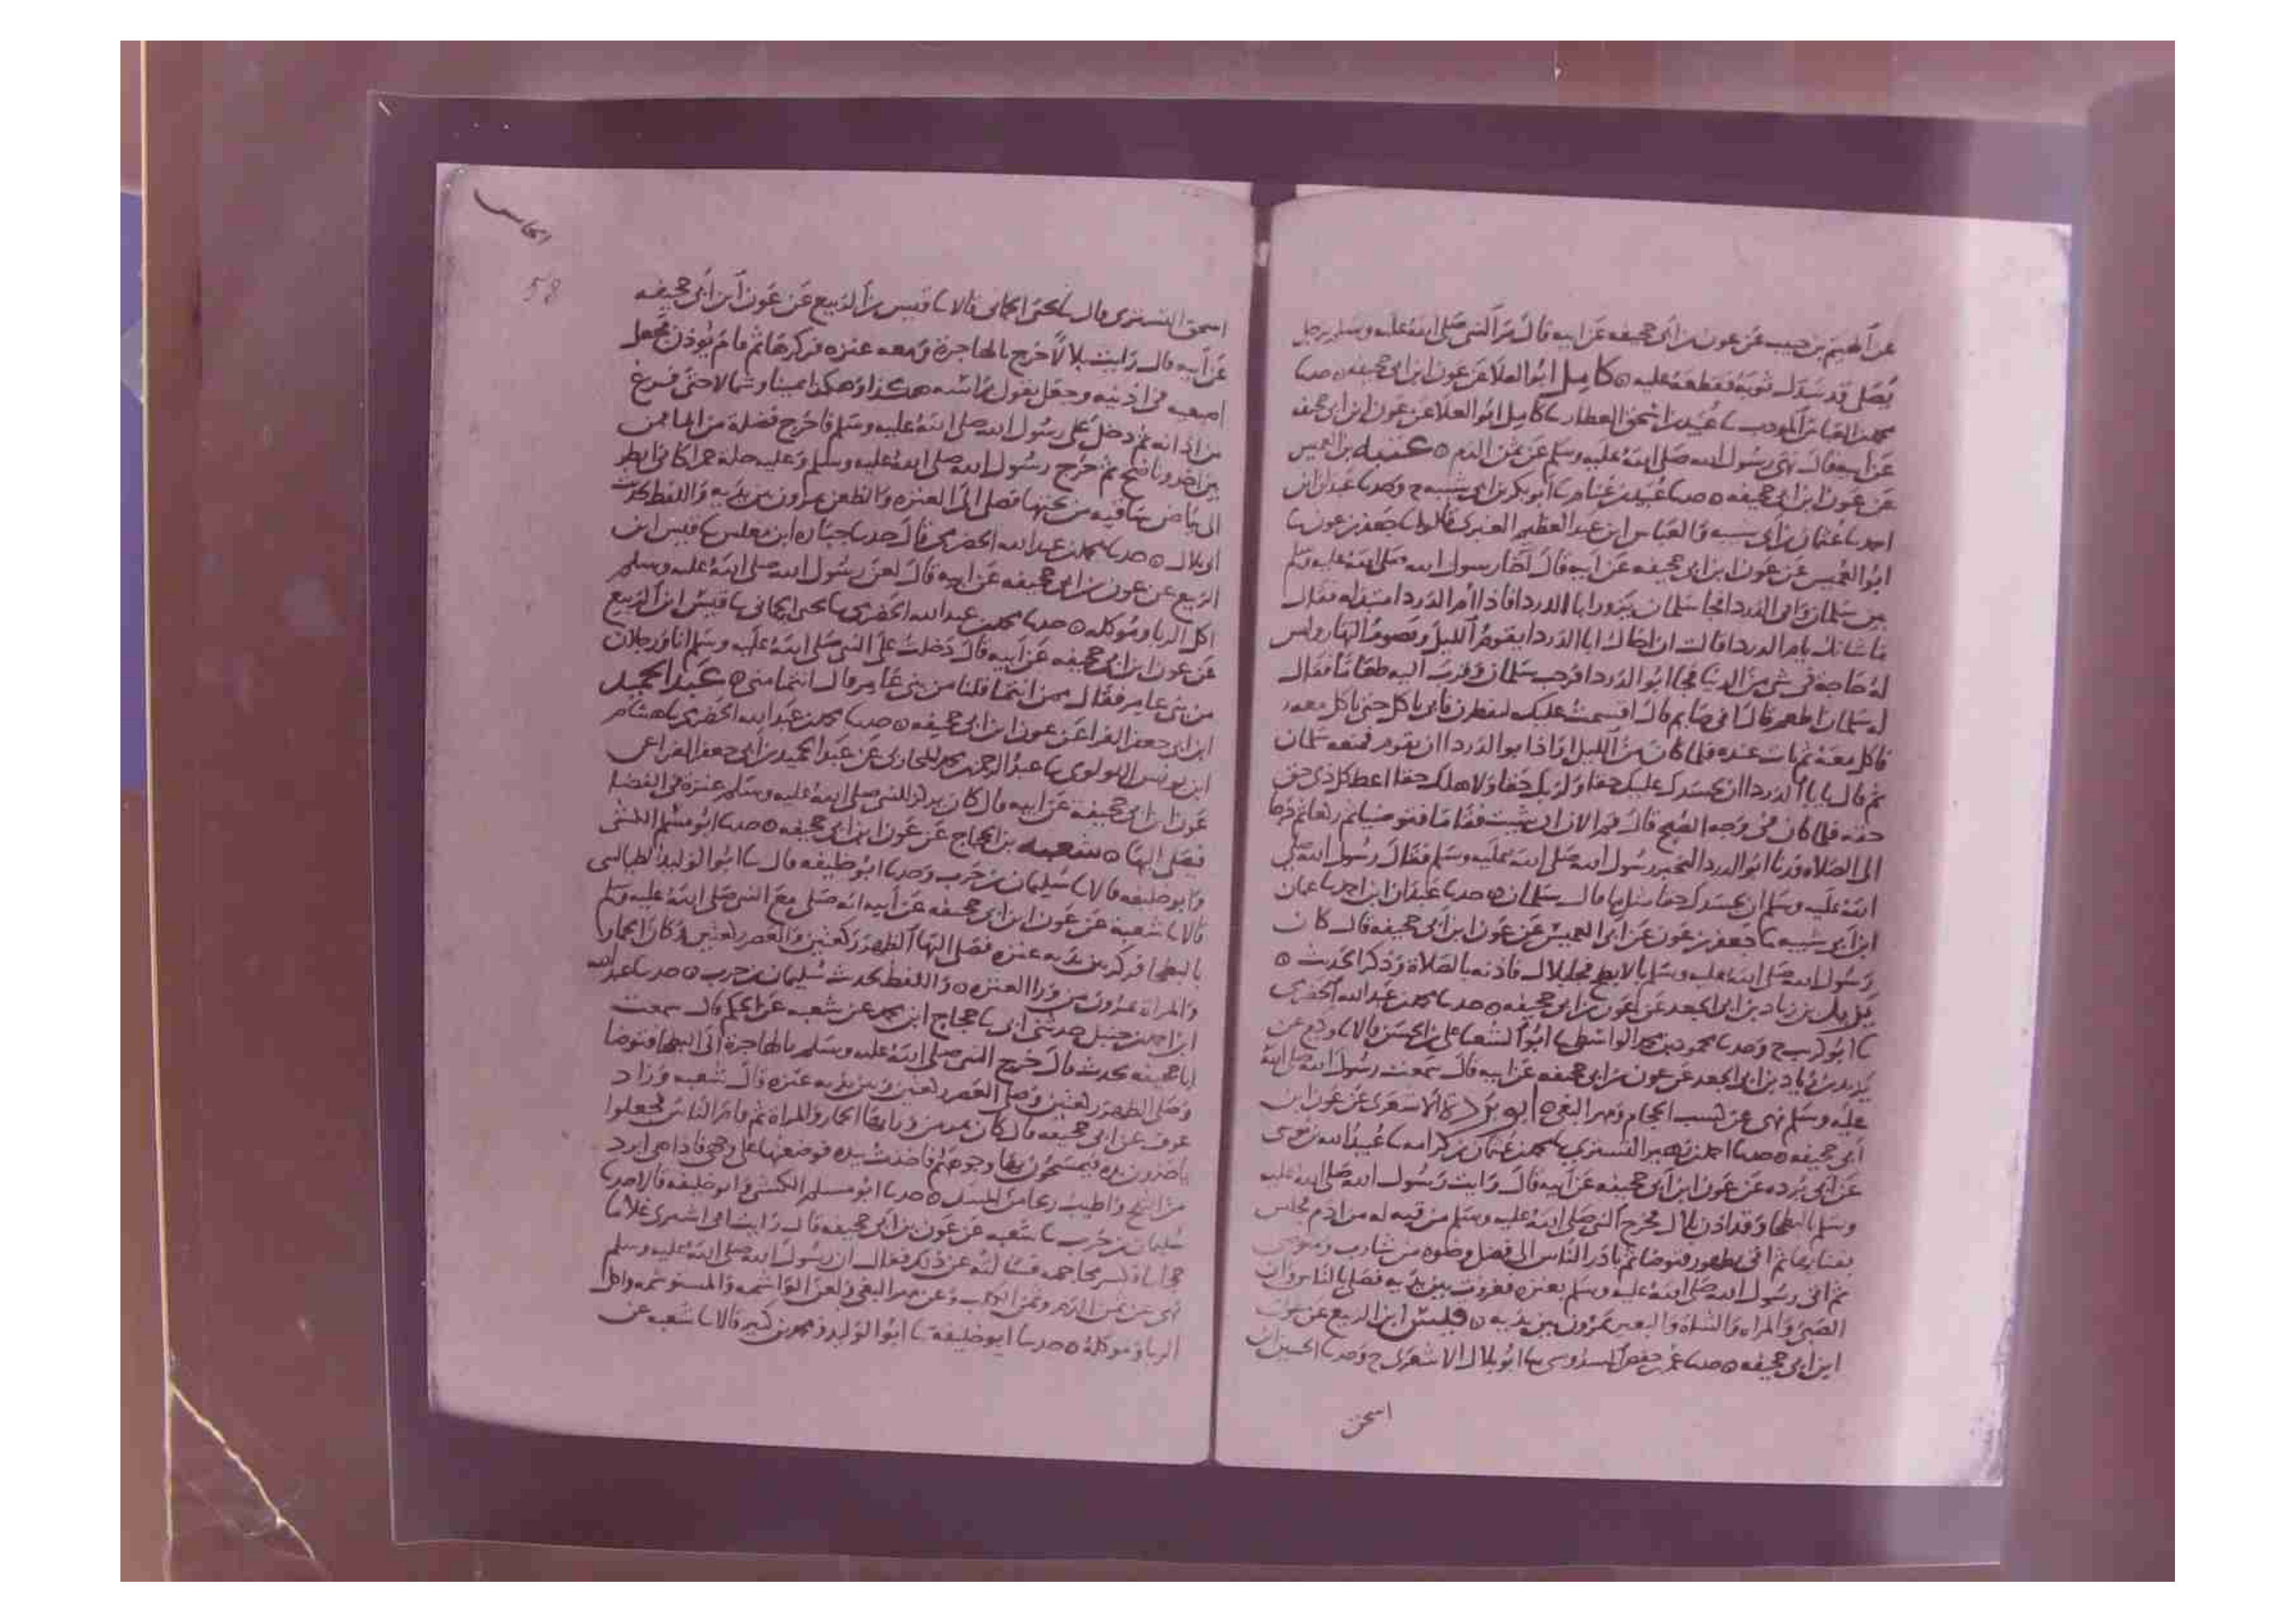 عن الهيثم بن حبيب عن عون بن ابي جحيفه عن ابيه قال مر النبي صلى الله عليه وسلم برجل
يصلي قد سدل ثوبه فعطفه عليه ه كامل ابو العلا عن عون ابن ابي جحيفه ه حدثنا
محمد بن العباس المودب سا عبيد بن اسحق العطار سا كامل ابو العلا عن عون ابن ابي جحيفه
عن ابيه قال نهى رسول الله صلى الله عليه وسلم عن ثمن الدم ه عتبه بن العميس
عن عون ابن ابي جحيفه ه حدثنا عبيد بن غنام سا ابو بكر بن ابي شيبه ح وحدثنا عبدان ابن
احمد سا عثمان بن ابي شيبه والعباس ابن عبد العظيم العنبري قالوا سا جعفر بن عون سا
ابو العميس عن عون ابن ابي جحيفه عن ابيه قال اخا رسول الله صلى الله عليه وسلم
بين سلمان وابي الدردا فجا سلمان يزور ابا الدردا فاذا ام الدردا متبذله فقال
ما شانك يام الدردا قالت ان اخاك ابا الدردا يقوم الليل ويصوم النهار وليس
له حاجة في شي من الدنيا فجا ابو الدردا فرحب سلمان وقرب اليه طعاما فقال
له سلمان اطعم قال اني صايم قال اقسمت عليك لتفطرن فاني ياكل حتى ياكل معه
فاكل معه ثم بات عنده فلما كان من الليل اذا ابو الدردا ان يقوم فمنعه سلمان
ثم قال يابا الدردا ان لجسدك عليك حقا ولربك حقا ولاهلك حقا اعط كل ذي حق
حقه فلما كان في وجه الصبح قال قم الان ان شيت فقاما فتوضيا ثم ركعا ثم خرجا
الى الصلاه فدنا ابو الدردا ليخبر رسول الله صلى الله عليه وسلم فقال رسول الله صلى
الله عليه وسلم ان لجسدك حقا مثل ما قال سلمان ه حدثنا عبدان ابن احمد سا عثمان
ابن ابي شيبه سا جعفر بن عون عن ابي العميس عن عون ابن ابي جحيفه قال كان
رسول الله صلى الله عليه وسلم بالابطح فجا بلال فاذنه بالصلاة وذكر الحديث ه
يزيد بن زياد بن ابي الجعد عن عون بن ابي جحيفه ه حدثنا محمد بن عبد الله الحضرمي
سا ابو كريب ح وحدثنا محمود بن محمد الواسطي سا ابو الشعثا علي بن الحسن قالا سا وكيع عن
يزيد بن زياد بن ابي الجعد عن عون بن ابي جحيفه عن ابيه قال سمعت رسول الله صلى الله
عليه وسلم نهى عن كسب الحجام ومهر البغي ه ابو بردة الاشعري عن عون ابن
ابي جحيفه ه حدثنا احمد بن زهير التستري سا محمد بن عثمان بن كرامه سا عبيد الله بن موسى
عن ابي برده عن عون ابن ابي جحيفه عن ابيه قال رايت رسول الله صلى الله عليه
وسلم بالبطحا وقد اذن بلال فخرج النبي صلى الله عليه وسلم من قبه له من ادم فجلس
بفنايها ثم اتي بطهور فتوضا ثم بادر الناس الى فضل وضوه من شارب ومتوضي
ثم اتي رسول الله صلى الله عليه وسلم بعنزه فغرزت بين يديه فصلى بالناس وان
الصبي والمراه والشاة والبعير يمرون بين يديه ه قيس ابن الربيع عن عون
ابن ابي جحيفه ه حدثنا عمر بن حفص السدوسي سا ابو بلال الاشعري ح وحدثنا الحسين ابن
اسحق
58
اسحق التستري قال سا يحيى الحماني قالا سا قيس بن الربيع عن عون ابن ابي جحيفه
عن ابيه قال رايت بلالا خرج بالهاجرة ومعه عنزه فركزها ثم قام يوذن فجعل
اصبعيه في اذنيه وجعل يقول براسه هكذا وهكذا يمينا وشمالا حتى فرغ
من اذانه ثم دخل على رسول الله صلى الله عليه وسلم فاخرج فضلة من الما فمن
بين اخذ وناضح ثم خرج رسول الله صلى الله عليه وسلم وعليه حلة حمرا كاني انظر
الى بياض ساقيه من تحتها فصلى الى العنزه والظعن يمرون بين يديه واللفظ لحديث
ابي بلال ه حدثنا محمد بن عبد الله الحضرمي قال حدثنا جباره ابن مغلس سا قيس ابن
الربيع عن عون بن ابي جحيفه عن ابيه قال لعن رسول الله صلى الله عليه وسلم
اكل الربا وموكله ه حدثنا محمد بن عبد الله الحضرمي سا يحيى الحماني سا قيس ابن الربيع
عن عون ابن ابي جحيفه عن ابيه قال دخلت على النبي صلى الله عليه وسلم انا ورجلان
من بني عامر فقال ممن انتما قلنا من بني عامر قال انتما مني ه عبد الحميد
ابن ابي جعفر الفرا عن عون ابن ابي جحيفه ه حدثنا محمد بن عبد الله الحضرمي سا هشام
ابن يونس اللولوي سا عبد الرحمن بن محمد المحاربي عن عبد الحميد بن ابي جعفر الفرا عن
عون ابن ابي جحيفه عن ابيه قال كان يركز للنبي صلى الله عليه وسلم عنزة في الفضا
فيصلي اليها ه شعبه بن الحجاج عن عون ابن ابي جحيفه ه حدثنا ابو مسلم الكشي
وابو خليفه قالا سا سليمان بن حرب وحدثنا ابو خليفه قال سا ابو الوليد الطيالسي
قالا سا شعبة عن عون ابن ابي جحيفه عن ابيه انه صلى مع النبي صلى الله عليه وسلم
بالبطحا فركز بين يديه عنزه فصلى اليها الظهر ركعتين والعصر ركعتين وكان الحمار
والمراة يمرون من ورا العنزه ه واللفظ لحديث سليمان بن حرب ه حدثنا عبد الله
ابن احمد بن حنبل حدثني ابي سا حجاج ابن محمد عن شعبه عن الحكم قال سمعت
ابا جحيفه يحدث قال خرج النبي صلى الله عليه وسلم بالهاجرة الى البطحا فتوضا
وصلى الظهر ركعتين وصلى العصر ركعتين وبين يديه عنزه قال شعبه وزاد
عون عن ابي جحيفه قال كان يمر من ورايها الحمار والمراة ثم قام الناس فجعلوا
ياخذون يده فيمسحون بها وجوههم فاخذت بيده فوضعتها على وجهي فاذا هي ابرد
من الثلج واطيب ريحا من المسك ه حدثنا ابو مسلم الكشي وابو خليفه قالا حدثنا
سليمان بن حرب سا شعبه عن عون بن ابي جحيفه قال رايت ابي اشترى غلاما
حجاما فكسر محاجمه فسالته عن ذلك فقال ان رسول الله صلى الله عليه وسلم
نهى عن ثمن الدم وثمن الكلب وعن مهر البغي ولعن الواشمه والمستوشمه واكل
الربا وموكله ه حدثنا ابو خليفة سا ابو الوليد ومحمد بن كثير قالا سا شعبه عن